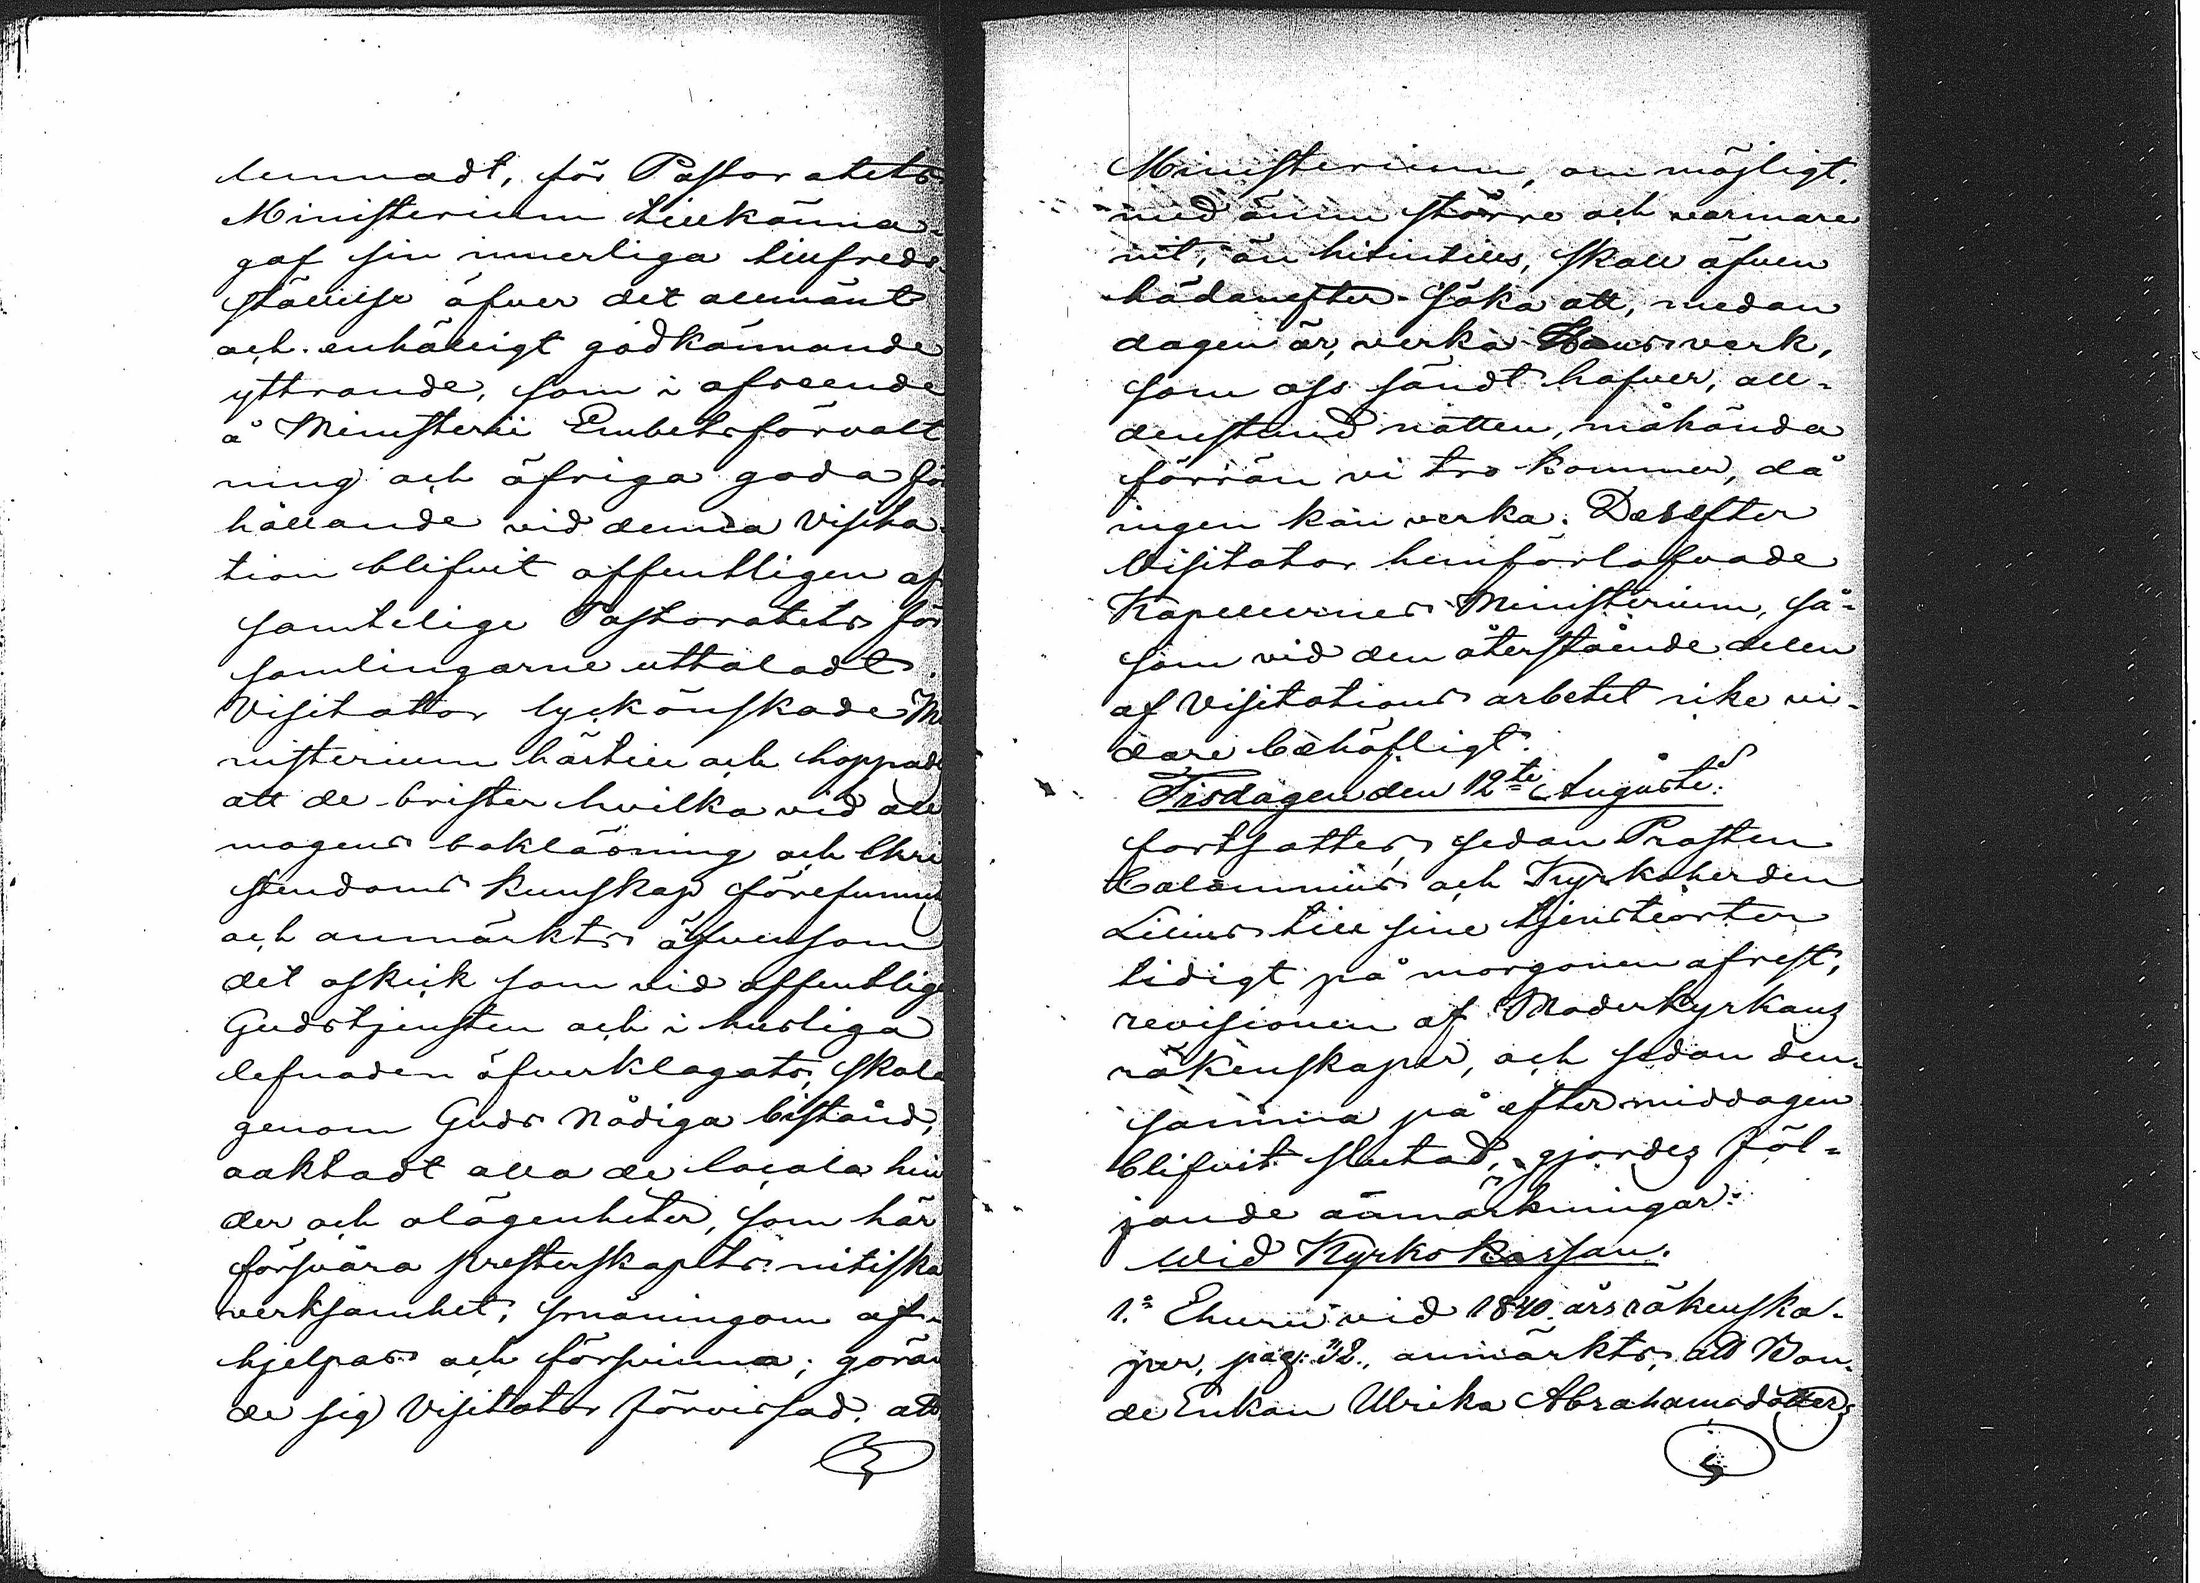 lemnadt, för Pastoratets
Ministerium tillkänna-
gaf sin innerliga tillfreds-
ställelse öfver det allmänt
och enhälligt godkännande
yttrande, som i afseende
å Ministerii Embetsförvalt
ning och öfriga goda för
hållande vid denna Visita
tion blifvit offentligen af
samtelige Pastoratets för
samlingarne uttaladt.
Visitator lyckönskade Mi
nisterium härtill och hoppade
att de brister hvilka vid all
mogens bokläsning och Chri
stendoms kunskap förefunnits
och anmärkts äfvensom
det oskick som vid offentlige
Gudstjensten och i husliga
lefnaden öfverklagats, skola
genom Guds Nådiga bistånd,
oaktadt alla de locala hin
der och olägenheter, som här
försvåra Presterskapets nitiska
verksamhet, småningom af-
hjelpas och försvinna; göran
de sig Visitator förvissad, att
Ministerium, om möjligt,
med ännu större och varmare
nit, än hitintills, skall äfven
hädanefter söka att, medan
dagen är, verka Hans verk,
som oss sändt hafver, all-
denstund natten, måhända
förrän vi tro kommer, då
ingen kan verka. Derefter
Visitator hemförlofvade
Kapellernes Ministerium, så-
som vid den återstående delen
af Visitations arbetet icke vi-
dare behöfligt.
Tisdagen den 12te Augusti
fortsattes, sedan Prosten
Calamnius och Kyrkoherden
Lilius till sine tjensteorter
tidigt på morgonen afrest,
revisionen af Moderkyrkans
räkenskaper, och sedan den-
samma på eftermiddagen
blifvit slutad, gjordes föl-
jande anmärkningar:
Wid Kyrkokassan.
1:o Ehuru vid 1840 års räkenska-
per, pag: 32., anmärkts, att Bon-
de Enkan Ulrika Abrahamsdotter